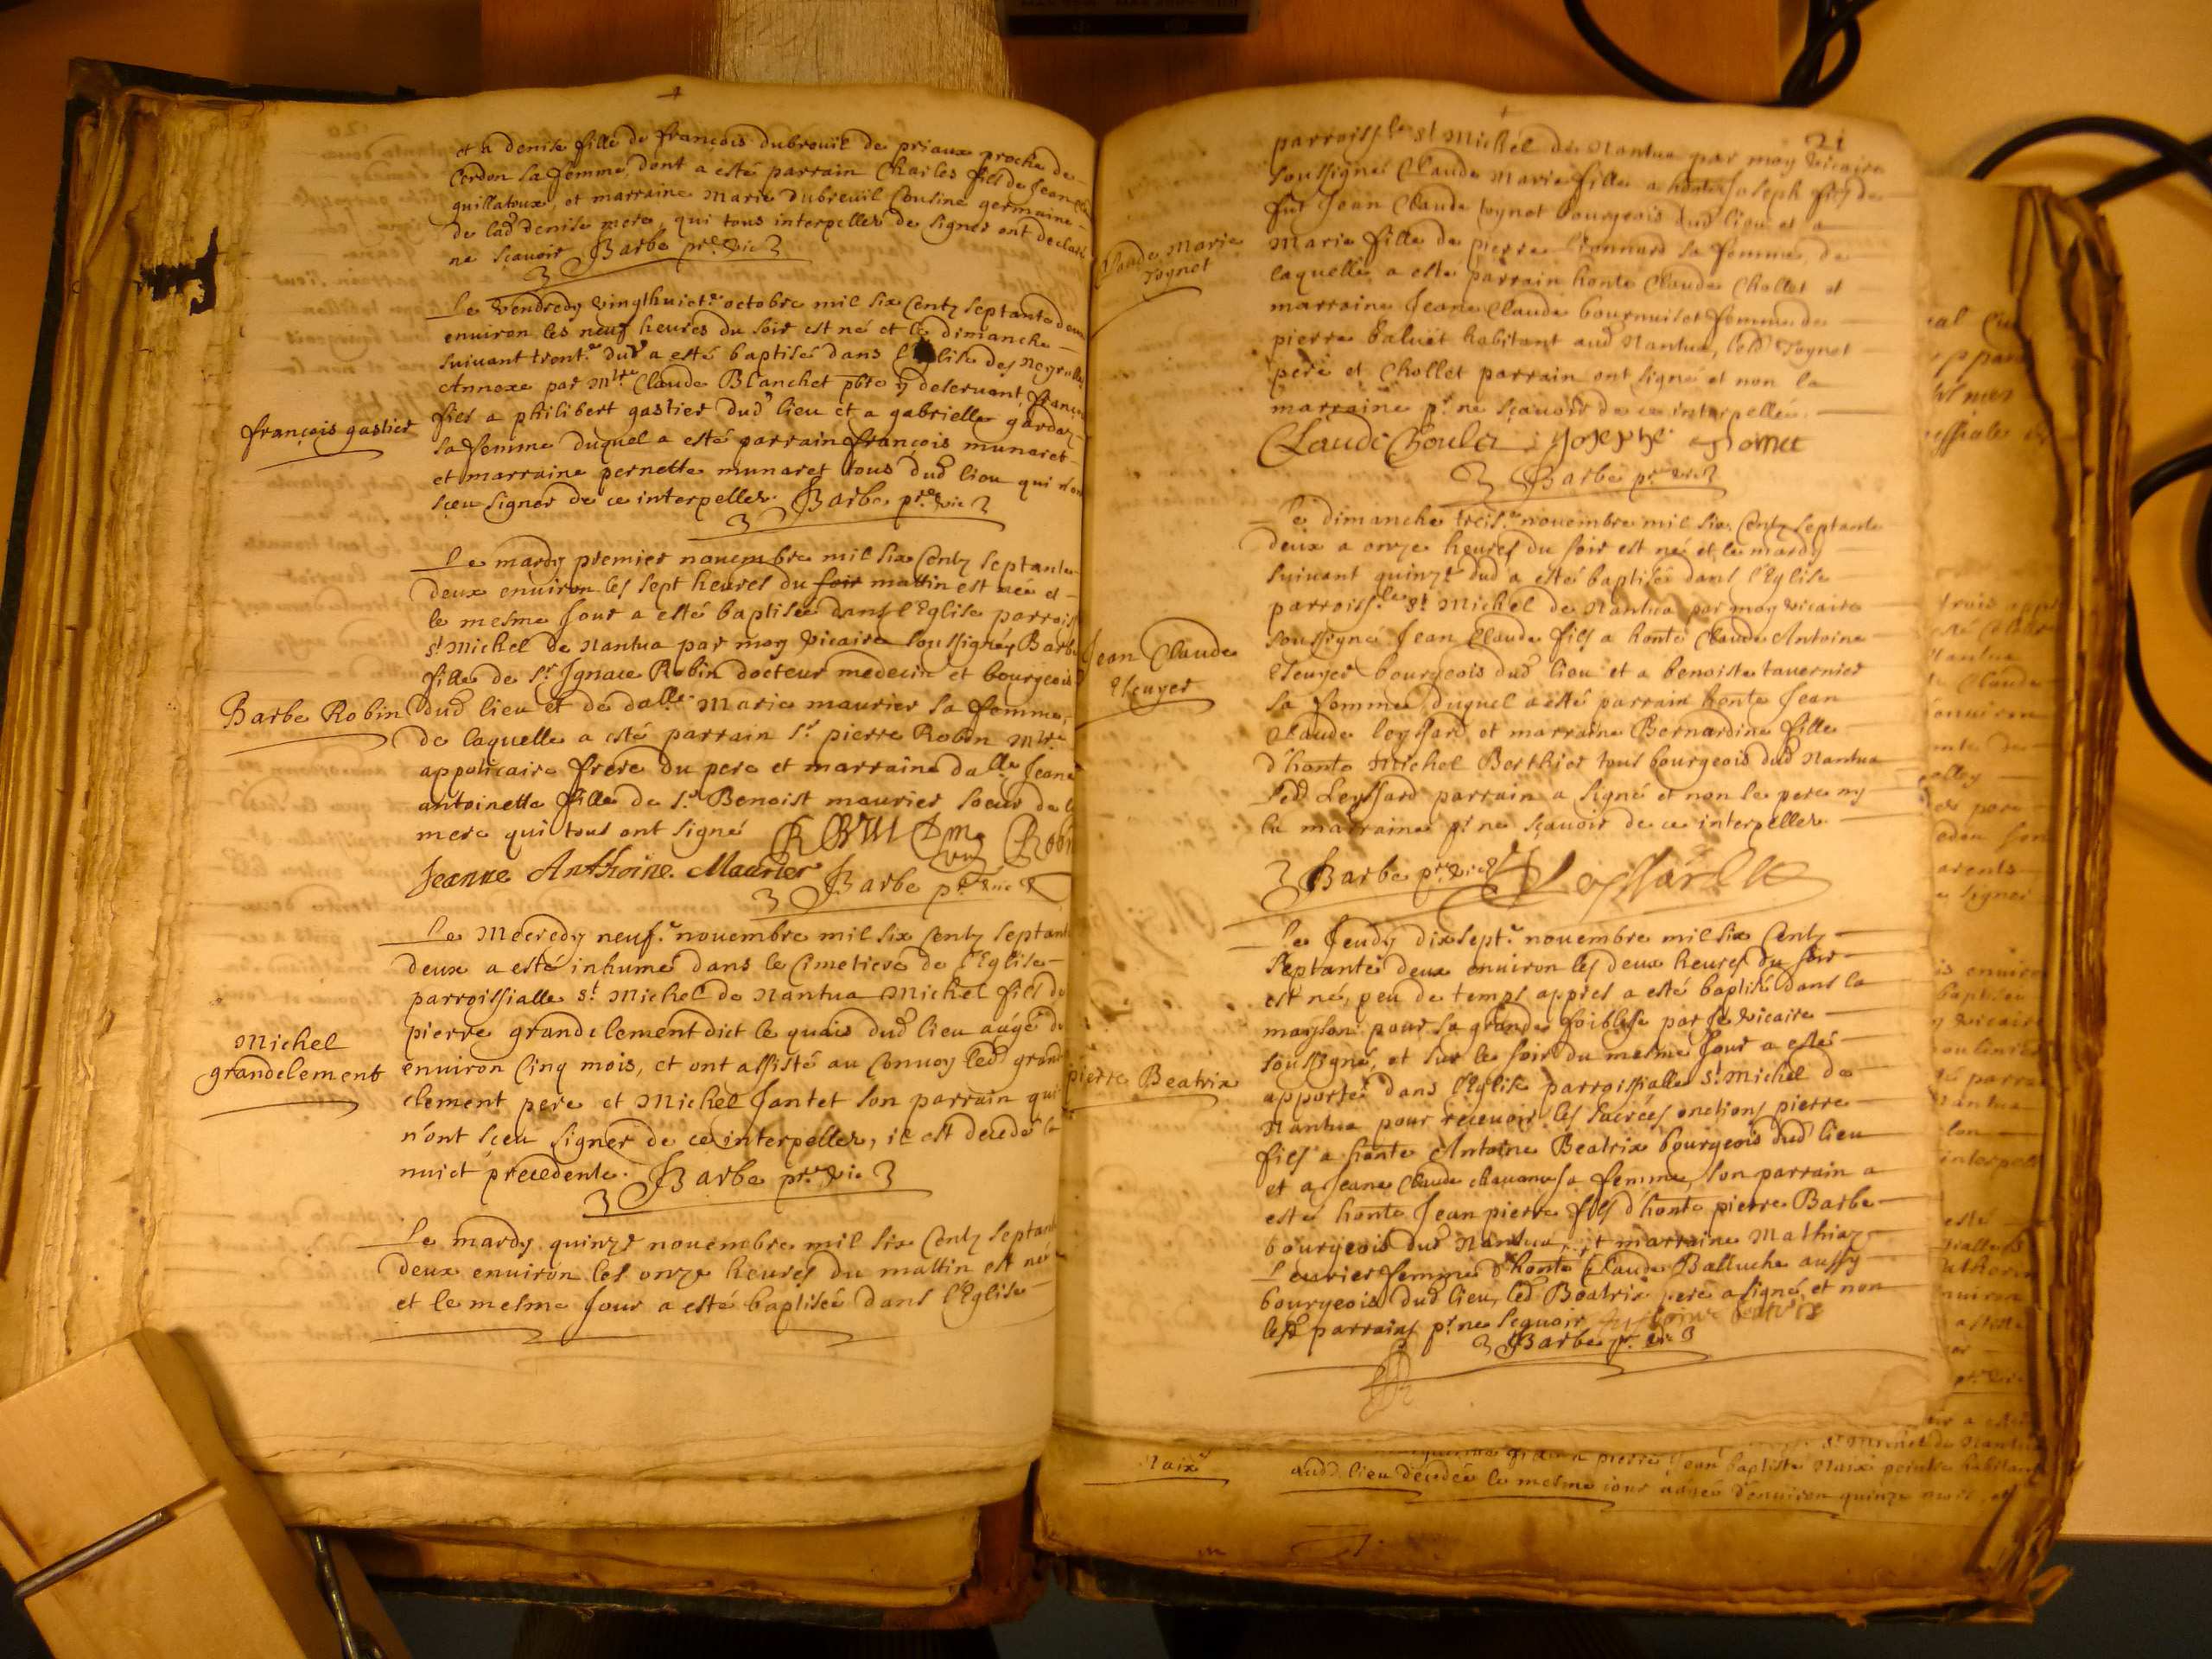 et a denise fille de françois dubreuil de priaux proche de
Cerdon sa femme, dont a esté parrain Charles fils de Jean
guillatoux, et marraine Marie dubreuil Cousine germaine
de lad denise mere, qui tous interpeller de signer ont declaré
ne sçauoir Barbe pre vic
Le vendredy vingthuicte octobre mil six Centz septante deux
enuiron les neuf heures du soir est né et le dimanche
suiuant trente dud a esté baptisé dans l'Eglise des Neyrolles
Annexe par Mtre Claude Blanchet pbre y deseruant, françois
fils a philibert gastier dud lieu et a gabrielle gardaz
françois gastier
sa femme duquel a esté parrain françois munaret
et marraine pernette munaret tous dud lieu qui n'ont
sçeu signer de ce interpeller. Barbe pre vic
Le mardy premier nouembre mil six Centz septante
deux enuiron les sept heures du soir mattin est née et
le mesme Jour a esté baptisée dans l'Eglise parrois
st Michel de Nantua par moy vicaire soussigné, Barbe
fille de sr Ignace Robin docteur medecin et bourgeois
Barbe Robin
dud lieu et de dalle Marie maurier sa femme,
de laquelle a esté parrain sr pierre Robin Mtre
appoticaire frere du pere et marraine dalle Jeane
antoinette fille de sr Benoist maurier soeur de la
mere qui tous ont signé
Jeanne Anthoine Maurier
Barbe pre vic
Le Mecredy neufe nouembre mil six Centz septante
deux a esté inhumé dans le Cimetiere de l'Eglise
parroissialle st Michel de Nantua Michel fils de
pierre grandclement dict le quais dud lieu aagé de
Michel
grandclement
enuiron Cinq mois, et ont assisté au Conuoy led grand
clement pere et Michel Jantet son parrain qui
n'ont sçeu signer de ce interpeller, il est decedé la
nuict precedente. Barbe pre vic
Le mardy quinze nouembre mil six Centz septante
deux enuiron les onze heures du mattin est née
et le mesme Jour a esté baptisée dans l'Eglise
21
parroissle st Michel de Nantua par moy vicaire
soussigné Claude Marie fille a honte Joseph fils de
fut Jean Claude toynet bourgeois dud lieu et a
Claude Marie
toynet
Marie fille de pierre sa femme, de
laquelle a esté parrain honte Claude Chollet et
marraine Jeane Claude femme de
pierre baluet habitant aud Nantua, led toynet
pere et Chollet parrain ont signé et non la
marraine pr ne sçauoir de ce interpellée.
Barbe pre vic
Le dimanche treise nouembre mil six Centz septante
deux a onze heures du soir est né et le mardy
suiuant quinze dud a esté baptisé dans l'Eglise
parroissle st Michel de Nantua par moy vicaire
soussigné Jean Claude fils a honte Claude Antoine
Jean Claude
Escuyer
Escuyer bourgeois dud lieu et a benoiste tauernier
sa femme duquel a esté parrain honte Jean
Claude leyssard et marraine Bernardine fille
d'honte Michel Berthier tous bourgeois dud Nantua
led Leyssard parrain a signé et non le pere ny
la marraine pr ne sçauoir de ce interpeller.
Barbe pre vic Leyssard
Le Jeudy dixsepte nouembre mil six Centz
septante deux enuiron les deux heures du soir
est né, peu de temps appres a esté baptisé dans la
mayson pour sa grande foiblesse par le vicaire
soussigné, et sur le soir du mesme Jour a esté
pierre Beatrix
apporté dans l'Eglise parroissialle st Michel de
Nantua pour receuoir les sacrées onctions pierre
fils a honte Antoine Beatrix bourgeois dud lieu
et a Jeane Claude sa femme, son parrain a
esté honte Jean pierre fils d'honte pierre Barbe
bourgeois dud Nantua, et marraine Mathiaz
femme d'honte Claude Balluche aussy
bourgeois dud lieu, led Beatrix pere a signé et non
lesd parrains pr ne sçauoir
Barbe pr vic
Naix
aud lieu decedée le mesme jour aagée d'enuiron quinze mois, et